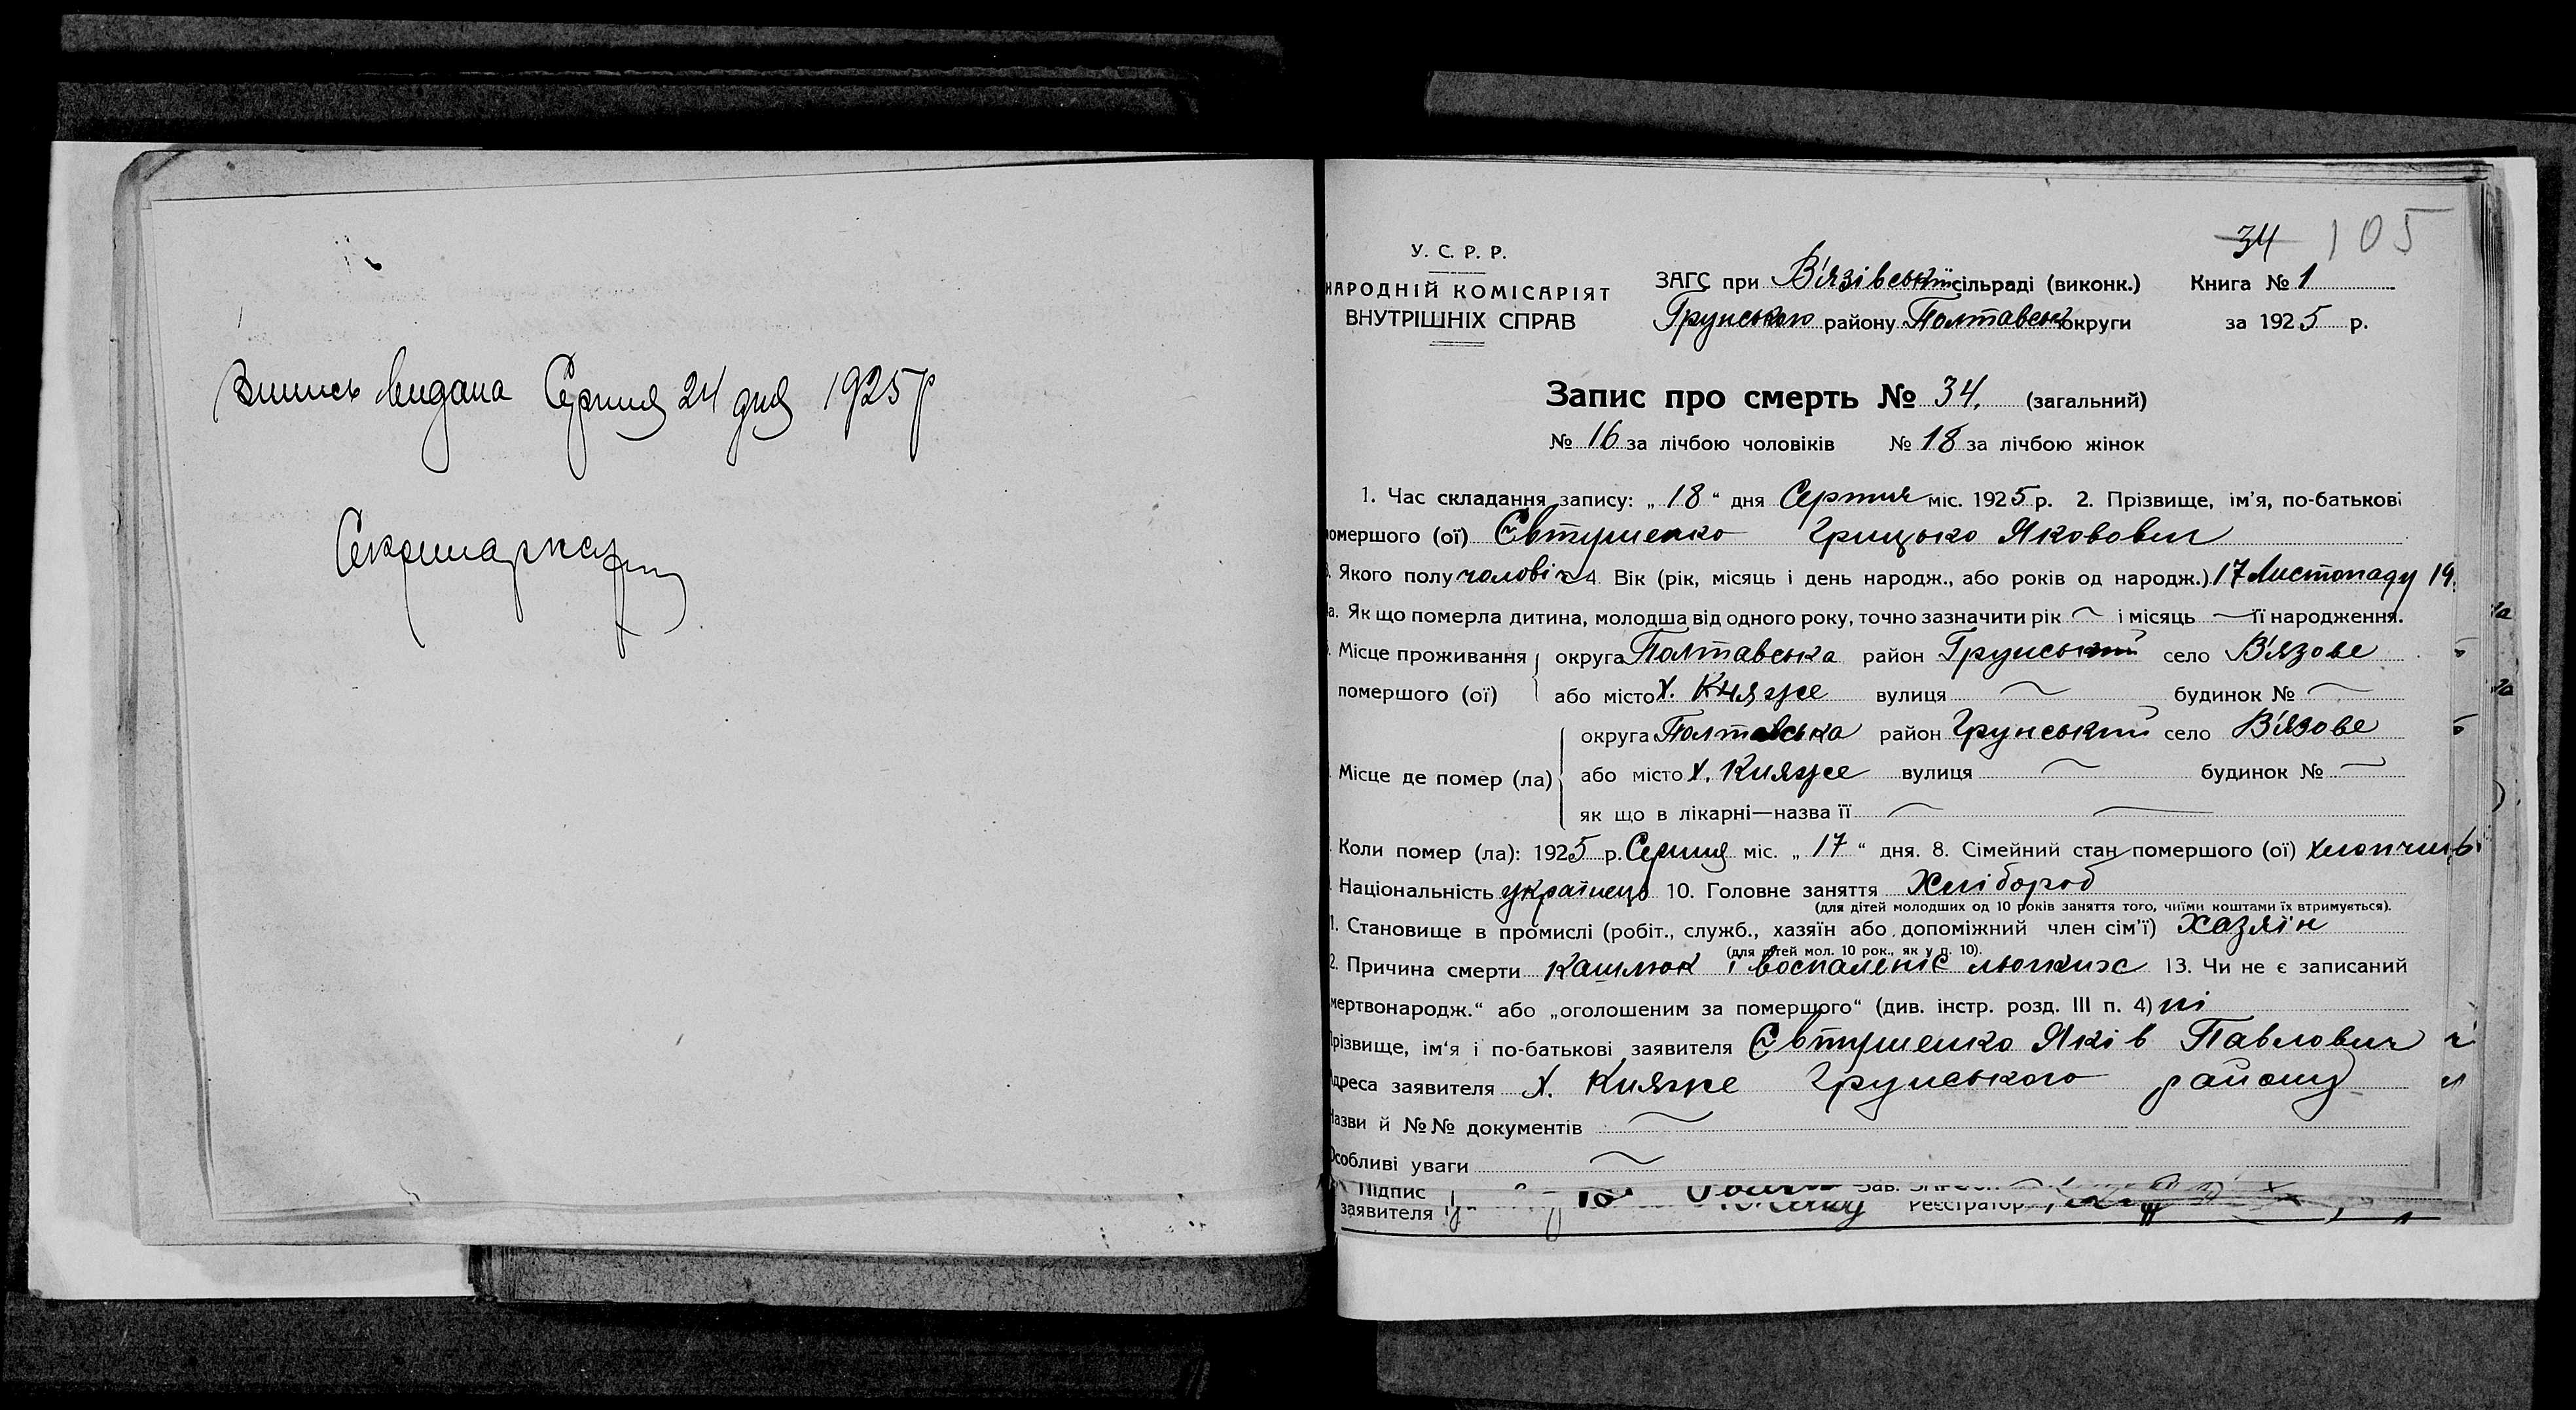 Випись видана Серпня 24 дня 1925 р
Секретарь
34 105
У. С. Р. Р.
НАРОДНІЙ КОМІСАРІЯТ
ВНУТРІШНІХ СПРАВ
ЗАГС при В'язівській сільраді (виконк.) Книга № 1
Грунського району Полтавськ округи за 1925 р.
Запис про смерть № 34. (загальний)
№ 16 за лічбою чоловіків № 18 за лічбою жінок
1. Час складання запису: „ 18 “ дня Серпня міс. 1925 р. 2. Прізвище, ім'я, по-батькові
омершого (ої) Євтушенко Грицько Якович
Якого полу чоловіч 4. Вік (рік, місяць і день народж., або років од народж.) 17 Листопаду 19
а. Як що померла дитина, молодша від одного року, точно зазначити рік ~ і місяць — її народження.
Місце проживання округа Полтавська район Грунський село В'язове
помершого (ої) або місто х. Княже вулиця ~ будинок № ~
округа Полтавська район Грунський село В'язове
Місце де помер (ла) або місто х. Княже вулиця ~ будинок № ~
як що в лікарні—назва її ~
Коли помер (ла): 1925 р. Серпня міс. „ 17 “ дня. 8. Сімейний стан помершого (ої)
Національність українець 10. Головне заняття Хлібороб
(для дітей молодших од 10 років заняття того, чиїми коштами їх втримується).
1. Становище в промислі (робіт., служб., хазяїн або допоміжний член сім'ї) хазяїн
(для дітей мол. 10 рок., як у п. 10).
2. Причина смерти кашлюк і воспаленіє льогких 13. Чи не є записаний
мертвонародж.“ або „оголошеним за помершого“ (див. інстр. розд. III п. 4) ні
Прізвище, ім'я і по-батькові заявителя Євтушенко Яків Павлович
Адреса заявителя х. Княже Грунського району
Назви й №№ документів ~
Особливі уваги ~
Підпис Зав. ЗАГСом
заявителя Реєстратор